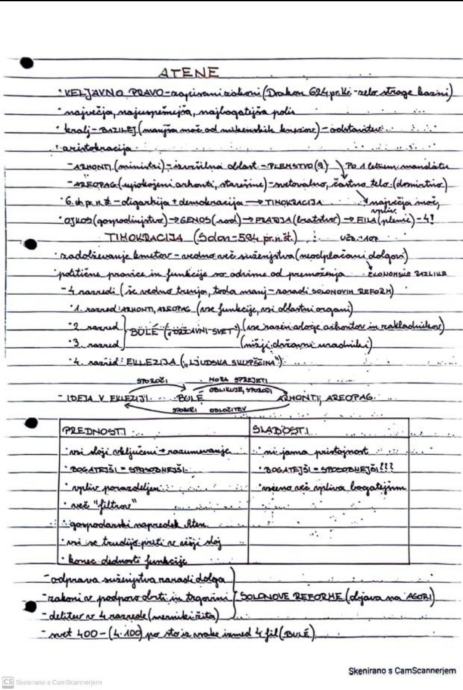 ATENE
• VELJAVNO PRAVO - zapisani zakoni (Drakon 624 pr. n. št. - zelo stroge kazni)
• največja, najuspešnejša, najbogatejša polis
• kralj - BAZILEJ (manjša moč od mikenskih knezov) - odstavitev
• aristokracija
- ARHONTI (ministri) - izvršilna oblast - PLEMSTVO (9) Po 1 letnem mandatu
- AREOPAG (upokojeni arhonti, starešine) - svetovalno, častno telo (dosmrtno)
• 6. st. pr. n. št. - oligarhija + demokracija → TIMOKRACIJA največja moč, vpliv
• OJKOS (gospodinjstvo) → GENOS (rod) → FRATIJA (bratstvo) → FILA (pleme) - 4!
TIMOKRACIJA (Solon - 594 pr. n. št.) UČB - 107
• zadolževanje kmetov - vedno več suženjstva (neodplačani dolgovi)
• politične pravice in funkcije so odvisne od premoženja EKONOMSKE RAZLIKE
- 4 razredi (še vedno trenja, toda manj - zaradi SOLONOVIH REFORM)
• 1. razred: ARHONTI, AREOPAG (vse funkcije, vsi oblastni organi)
• 2. razred
BULÉ ("DRŽAVNI SVET") (vse razen vloge arhontov in zakladnikov)
• 3. razred (nižji državni uradniki)
• 4. razred: EKLEZIJA ("LJUDSKA SKUPŠČINA")
SPOROČI MORA SPREJETI
OBLIKUJE, SPOROČI
- IDEJA V EKLEZIJI BULÉ ARHONTI, AREOPAG
SPOROČI ODLOČITEV
PREDNOSTI SLABOSTI
• vsi sloji vključeni + razumevanje • ni jama pristojnost
• BOGATEJŠI = SPOSOBNEJŠI • BOGATEJŠI = SPOSOBNEJŠI???
• vpliv porazdeljen • vseeno več vpliva bogatejšim
• več "filtrov"
• gospodarski napredek Aten
• vsi se trudijo priti v višji sloj
• konec dednosti funkcije
- odprava suženjstva zaradi dolga
- zakoni v podporo obrti in trgovini SOLONOVE REFORME (objava na AGORI)
- delitev v 4 razrede (merniki žita)
- svet 400 - (4·100) po sto iz vsake izmed 4 fil (BULÉ)
Skenirano s CamScannerjem
CS Skenirano s CamScannerjem